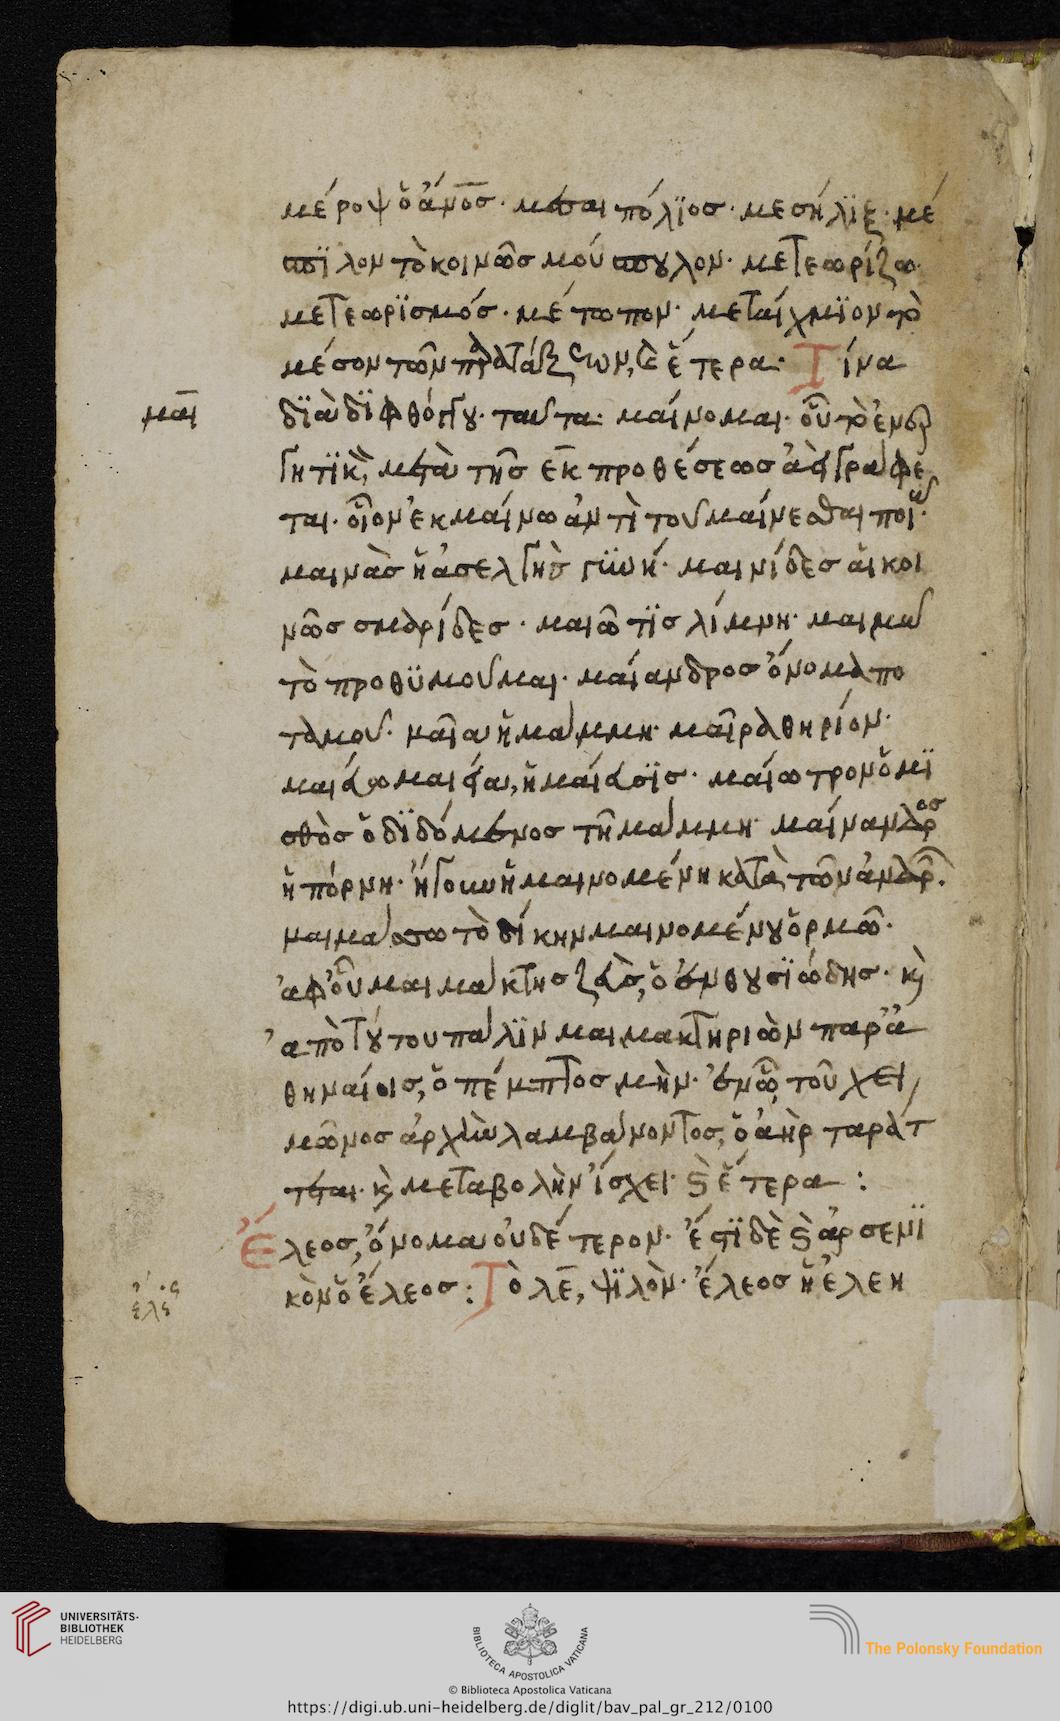 μέροψ ὁ ἄνος· μεσαιπόλϊος· μεσήλϊξ· μέ
σπϊλον τὸ κοινῶς μούσπουλον· μετεωρίζω·
μετεωρϊσμός· μέτωπον· μεταίχμϊον τὸ
μέσον τῶν παρατάξεων, καὶ ἕτερα· Τίνα
μαι
δϊὰ δϊφθόγγου· ταῦτα· μαίνομαι· οὗ τὸ ἐνερ
γητϊκὸν, μετὰ τῆς ἐκ προθέσεως ἀεὶ γράφε
ται· οἷον ἐκμαίνω ἀντὶ τοῦ μαίνεσθαι ποιῶ·
μαινὰς ἡ ἀσελγὴς γϋνή· μαινίδες αἱ κοι
νῶς σμαρίδες· μαιῶτϊς λίμνη· μαιμῶ
τὸ προθϋμοῦμαι· μαίανδρος ὄνομα πο
ταμοῦ· μαῖα ἡ μάμμη· μαῖρα θηρίον·
ὁ μϊ
σθὸς ὁ δϊδόμενος τῆ μάμμη· μαίνανδρος
ἡ πόρνη· ἤγουν ἡ μαινομένη κατὰ τῶν ἀνδρῶν·
μαιμάσσω τὸ δίκην μαινομένου ὁρμῶ·
ἀφ' οὗ μαιμάκτης ζεὺς, ὁ ἐνθουσϊώδης· καὶ
ἀπὸ τούτου πάλϊν μαιμακτηριὼν παρ' ἀ
θηναίοις, ὁ πέμπτος μὴν· ἐν ᾧ τοῦ χει
μῶνος ἀρχὴν λαμβάνοντος, ὁ ἀὴρ ταράτ
τεται· καὶ μεταβολὴν ἴσχει· καὶ ἕτερα :
Ἔλεος, ὄνομα οὐδέτερον· ἔστϊ δὲ καὶ ἀρσενϊ
κὸν ὁ ἔλεος : Τὸ λε, ψϊλὸν· ἔλεος ἡ ἐλεη
ἔλε
UNIVERSITÄTS-
BIBLIOTHEK
HEIDELBERG
BIBLIOTECA APOSTOLICA VATICANA
The Polonsky Foundation
© Biblioteca Apostolica Vaticana
https://digi.ub.uni-heidelberg.de/diglit/bav_pal_gr_212/0100